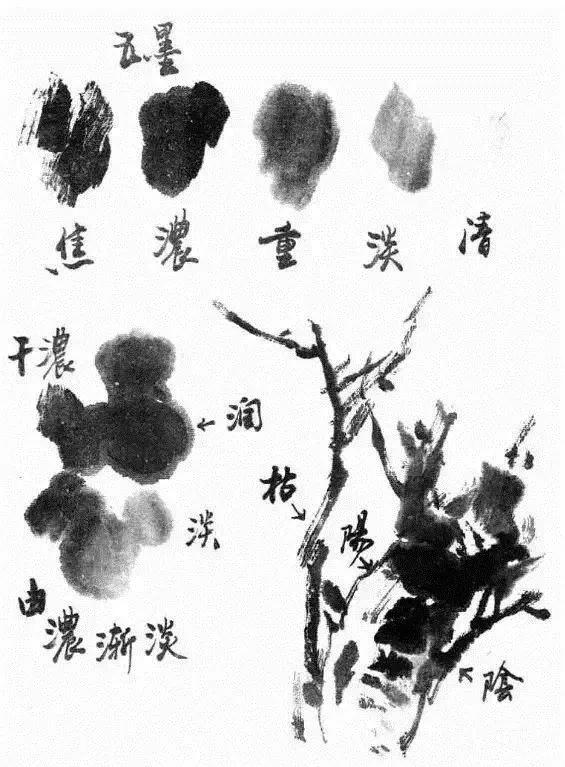 五墨
焦 濃 重 淡 清
干濃
润
淡
由濃漸淡
枯
陽
陰